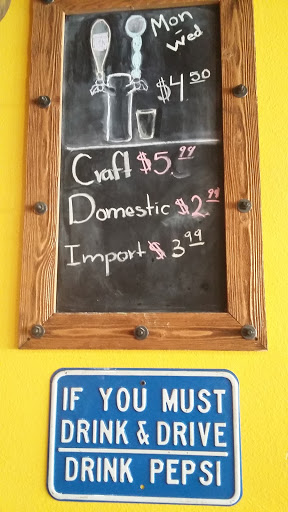 Mon
-
Wed
$4.50
Craft $5.99
Domestic $2.99
Import $3.99
IF YOU MUST
DRINK & DRIVE
DRINK PEPSI